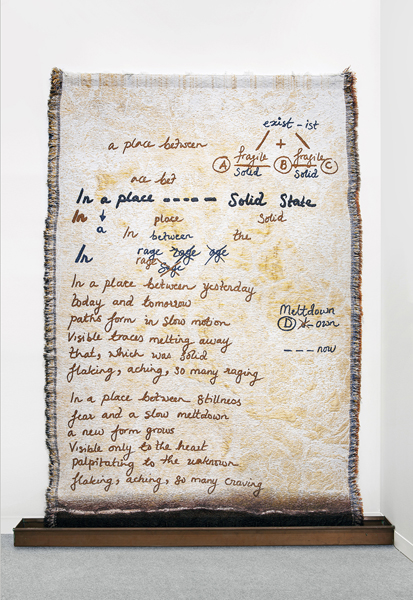 exist - ist
a place between
+
fragile fragile
A B C
Solid Solid
ace bet
In a place ----- Solid State
In ↓ place Solid
a In between the
In rage rage age
rage
In a place between yesterday
today and tomorrow
paths form in slow motion
Visible traces melting away
that, which was solid
flaking, aching, so many raging
Meltdown
D own
---- now
In a place between stillness
fear and a slow meltdown
a new form grows
Visible only to the heart
palpitating to the unknown
flaking, aching, so many craving